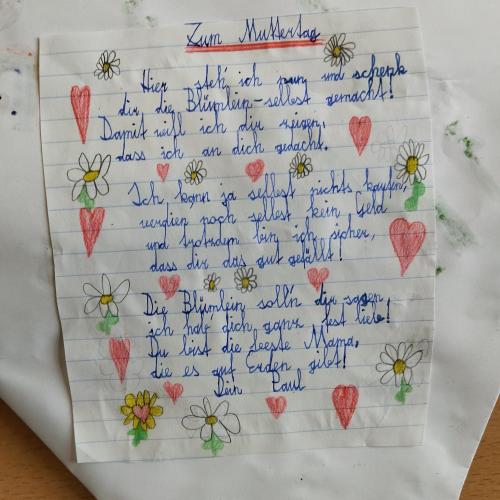 Zum Muttertag
Hier steh' ich nun und schenk
dir die Blümlein-selbst gemacht!
Damit will ich dir zeigen,
dass ich an dich gedacht.
Ich kann ja selbst nichts kaufen,
verdien noch selbst kein Geld
und trotzdem bin ich sicher,
dass dir das gut gefällt!
Die Blümlein soll'n dir sagen
ich hab dich ganz fest liebe!
Du bist die beste Mama,
die es auf Erden gibt!
Dein Paul